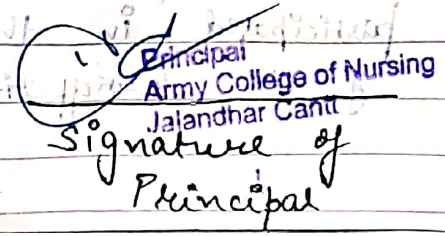 Principal
Army College of Nursing
Jalandhar Cantt
Signature of
Principal